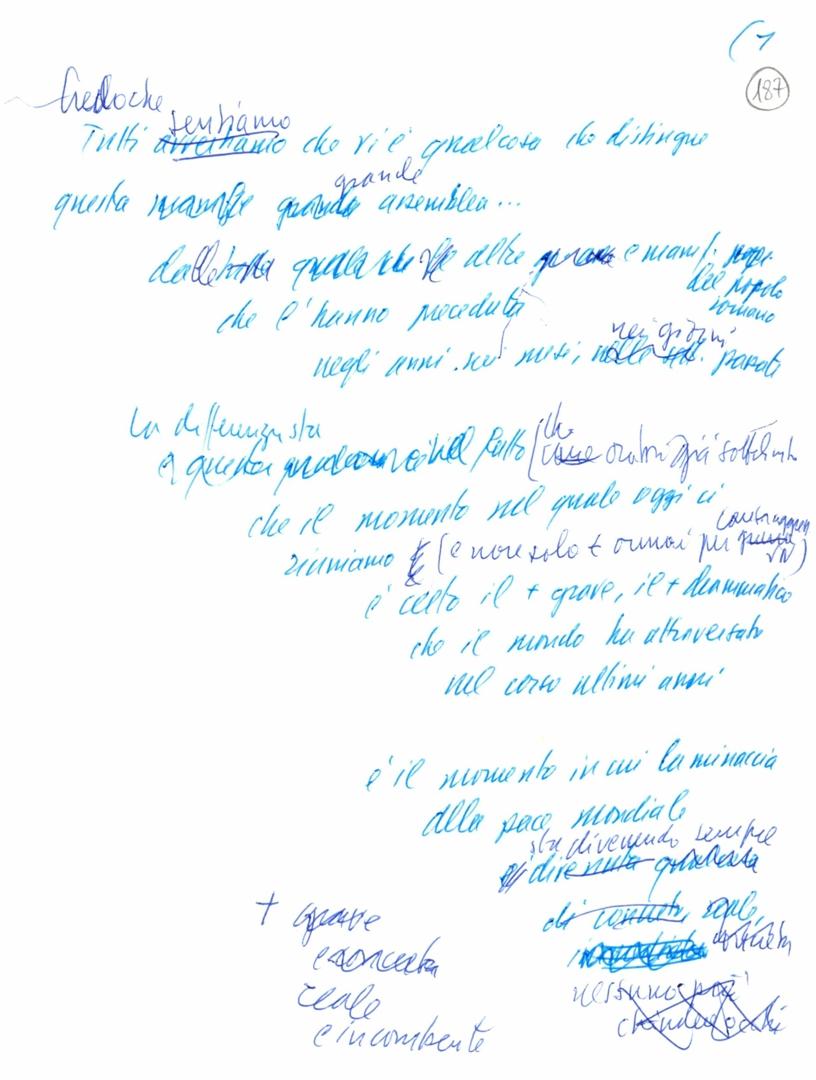 (1
187
Credo che
sentiamo
Tutti avvertiamo che vi è qualcosa che distingue
grande
questa grande assemblea...
altre e manif.
del popolo
romano
che l'hanno preceduta
nei giorni
negli anni, nei mesi, nelle sett. passati
La differenza sta
nel fatto (che
come oratori già sottolineato
che il momento nel quale oggi ci
riuniamo (e non solo + ormai per
è certo il + grave, il + drammatico
che il mondo ha attraversato
nel corso ultimi anni
è il momento in cui la minaccia
alla pace mondiale
sta divenendo sempre
divenuta qualcosa
di concreto, reale,
+ grave
concreta
reale
e incombente
nessuno può
chiudere occhi